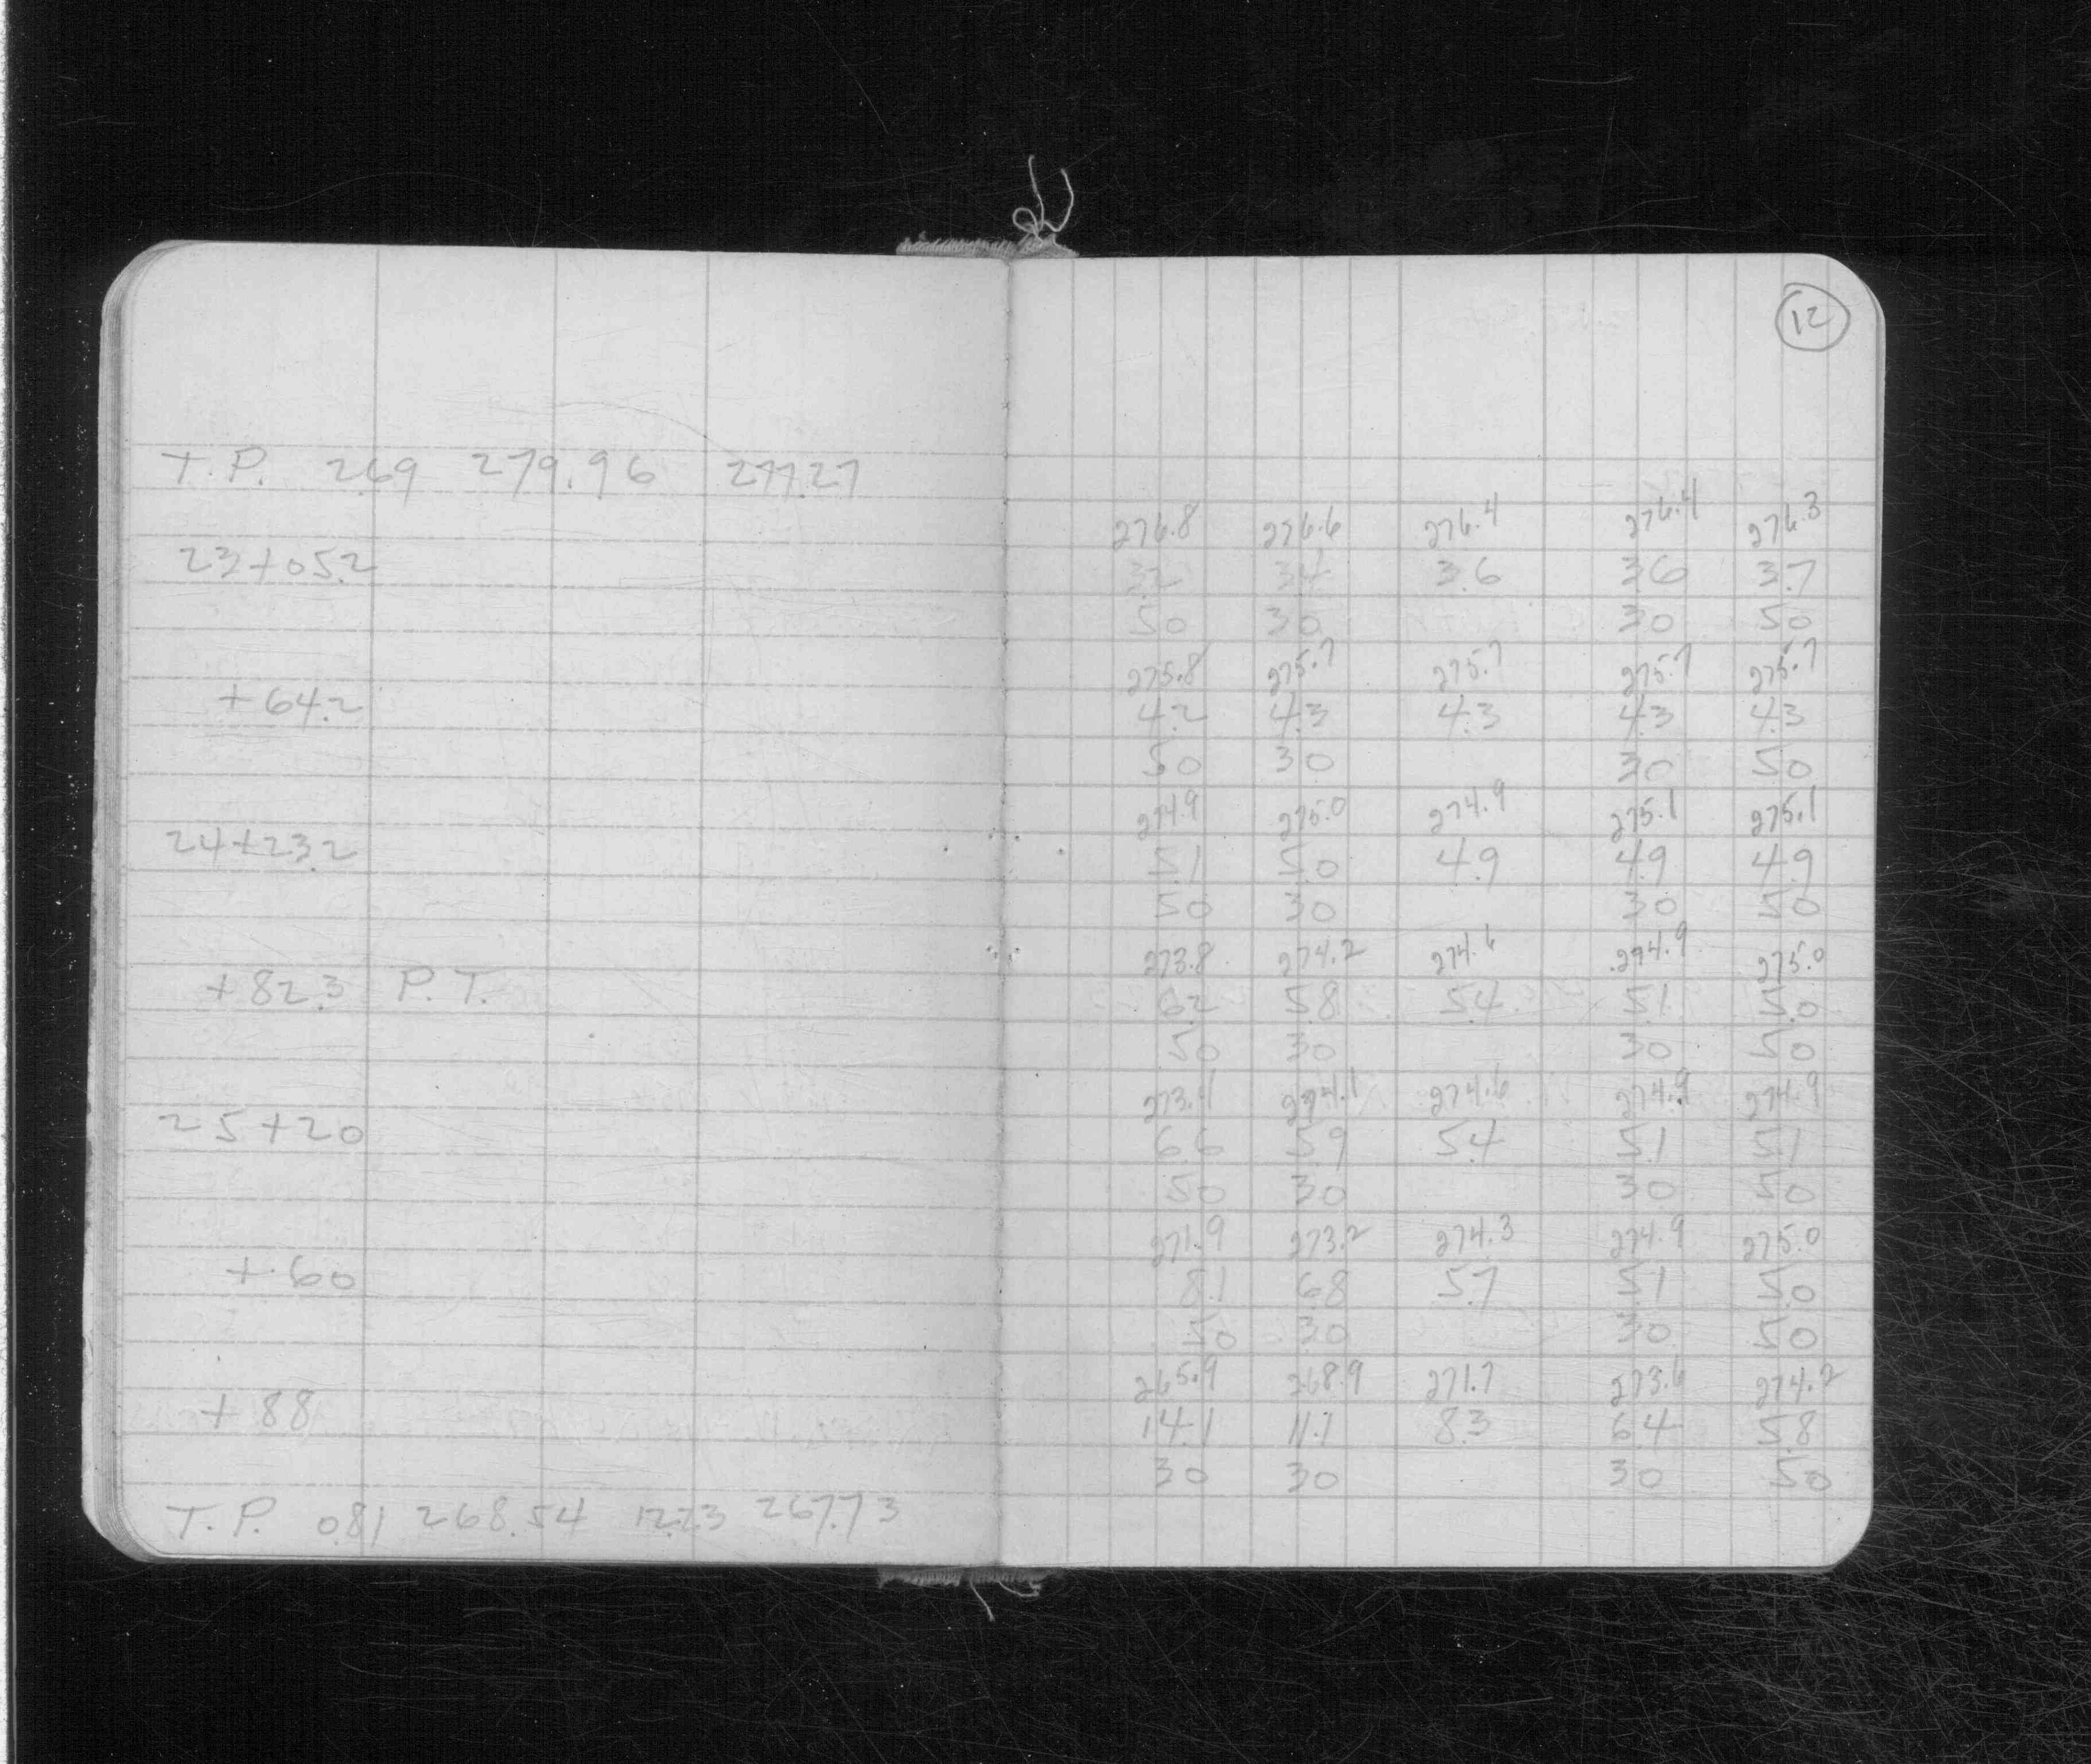 12
T.P. 2.69 279.96 277.27
276.8 276.6 276.4 276.4 276.3
23+05.2 3.2 3.4 3.6 3.6 3.7
50 30 30 50
275.8 275.7 275.7 275.7 275.7
+64.2 4.2 4.3 4.3 4.3 4.3
50 30 30 50
274.9 275.0 274.9 275.1 275.1
24+23.2 5.1 5.0 4.9 4.9 4.9
50 30 30 50
273.8 274.2 274.6 274.9 275.0
+82.3 P.T. 6.2 5.8 5.4 5.1 5.0
50 30 30 50
273.4 274.1 274.6 274.9 274.9
25+20 6.6 5.9 5.4 5.1 5.1
50 30 30 50
271.9 273.2 274.3 274.9 275.0
+60 8.1 6.8 5.7 5.1 5.0
50 30 30 50
265.9 268.9 271.7 273.6 274.2
+88 14.1 11.1 8.3 6.4 5.8
30 30 30 50
T.P. 0.81 268.54 12.23 267.73